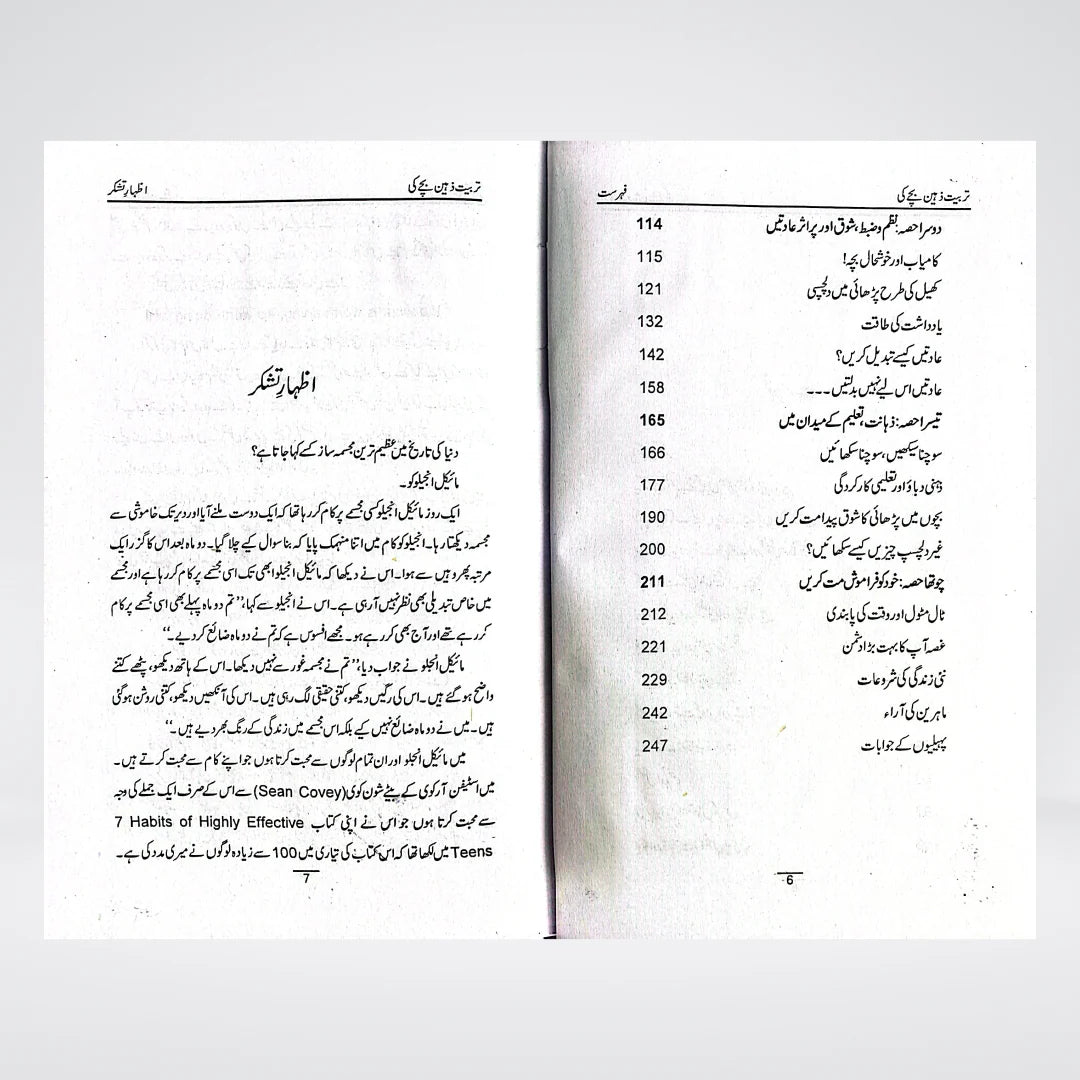 تربیت ذہین بچے کی فہرست
دوسرا حصہ: نظم و ضبط، شوق اور پراثر عادتیں 114
کامیاب اور خوشحال بچہ! 115
کھیل کی طرح پڑھائی میں دلچسپی 121
یادداشت کی طاقت 132
عادتیں کیسے تبدیل کریں؟ 142
عادتیں اس لیے نہیں بدلتیں۔۔۔ 158
تیسرا حصہ: ذہانت، تعلیم کے میدان میں 165
سوچنا سیکھیں، سوچنا سکھائیں 166
ذہنی دباؤ اور تعلیمی کارکردگی 177
بچوں میں پڑھائی کا شوق پیدا مت کریں 190
غیر دلچسپ چیزیں کیسے سکھائیں؟ 200
چوتھا حصہ: خود کو فراموش مت کریں 211
ٹال مٹول اور وقت کی پابندی 212
غصہ آپ کا بہت بڑا دشمن 221
نئی زندگی کی شروعات 229
ماہرین کی آراء 242
پہیلیوں کے جوابات 247
6
تربیت ذہین بچے کی اظہارِ تشکر
اظہارِ تشکر
دنیا کی تاریخ میں عظیم ترین مجسمہ ساز کسے کہا جاتا ہے؟
مائیکل انجیلو کو۔
ایک روز مائیکل انجیلو کسی مجسمے پر کام کر رہا تھا کہ ایک دوست ملنے آیا اور دیر تک خاموشی سے
مجسمہ دیکھتا رہا۔ انجیلو کو کام میں اتنا منہمک پایا کہ بنا سوال کیے چلا گیا۔ دو ماہ بعد اس کا گزر ایک
مرتبہ پھر وہیں سے ہوا۔ اس نے دیکھا کہ مائیکل انجیلو ابھی تک اسی مجسمے پر کام کر رہا ہے اور مجسمے
میں خاص تبدیلی بھی نظر نہیں آ رہی ہے۔ اس نے انجیلو سے کہا، ”تم دو ماہ پہلے بھی اسی مجسمے پر کام
کر رہے تھے اور آج بھی کر رہے ہو۔ مجھے افسوس ہے کہ تم نے دو ماہ ضائع کر دیے۔“
مائیکل انجلو نے جواب دیا، ”تم نے مجسمہ غور سے نہیں دیکھا۔ اس کے ہاتھ دیکھو، پٹھے کتنے
واضح ہو گئے ہیں۔ اس کی رگیں دیکھو، کتنی حقیقی لگ رہی ہیں۔ اس کی آنکھیں دیکھو، کتنی روشن ہو گئی
ہیں۔ میں نے دو ماہ ضائع نہیں کیے بلکہ اس مجسمے میں زندگی کے رنگ بھر دیے ہیں۔“
میں مائیکل انجلو اور ان تمام لوگوں سے محبت کرتا ہوں جو اپنے کام سے محبت کرتے ہیں۔
میں اسٹیفن آر کوی کے بیٹے شون کوی (Sean Covey) سے اس کے صرف ایک جملے کی وجہ
سے محبت کرتا ہوں جو اس نے اپنی کتاب 7 Habits of Highly Effective
Teens میں لکھا تھا کہ اس کتاب کی تیاری میں 100 سے زیادہ لوگوں نے میری مدد کی ہے۔
7